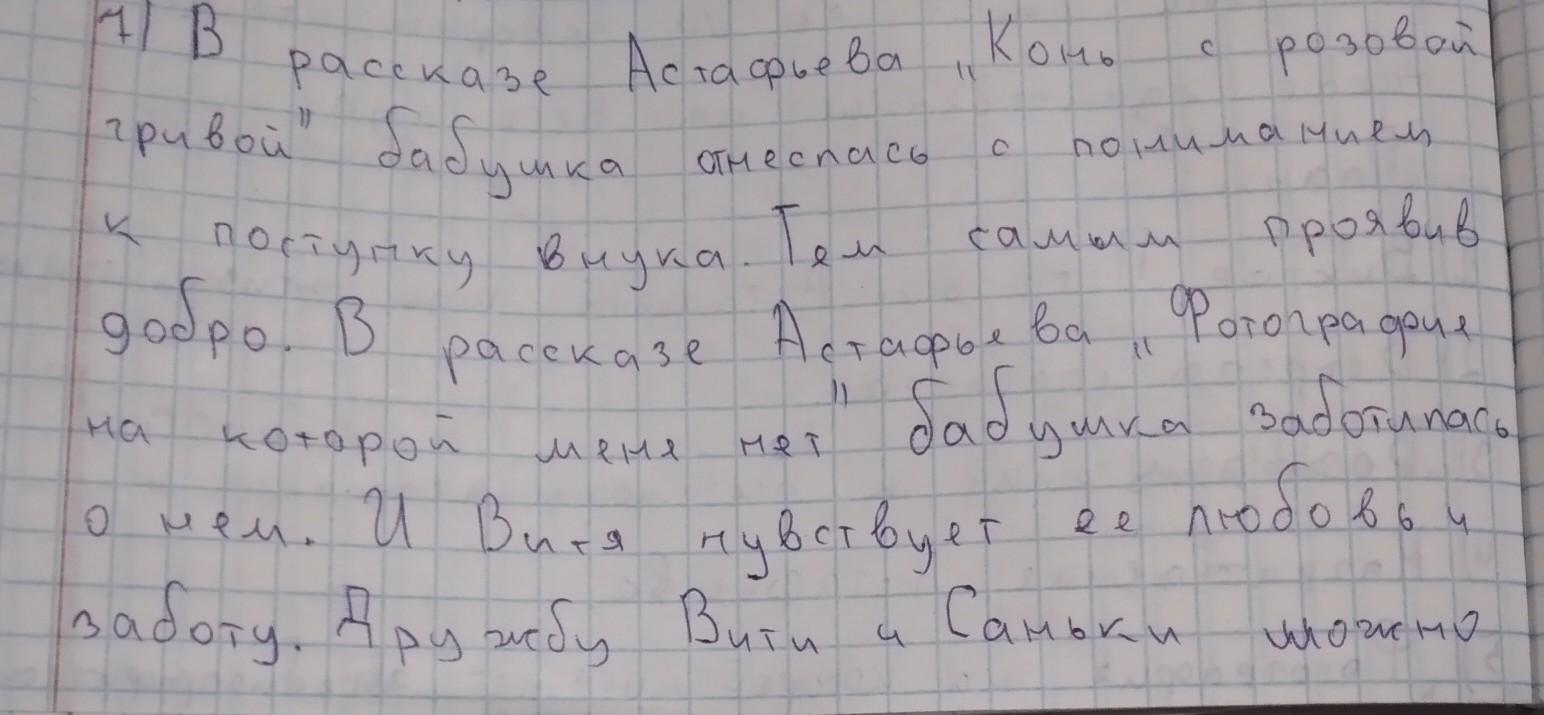 1) В рассказе Астафьева „Конь с розовой
гривой" бабушка отнеслась с пониманием
к поступку внука. Тем самым проявив
добро. В рассказе Астафьева „Фотография
на которой меня нет" бабушка заботилась
о нем. И Витя чувствует ее любовь и
заботу. Дружбу Вити и Саньки можно